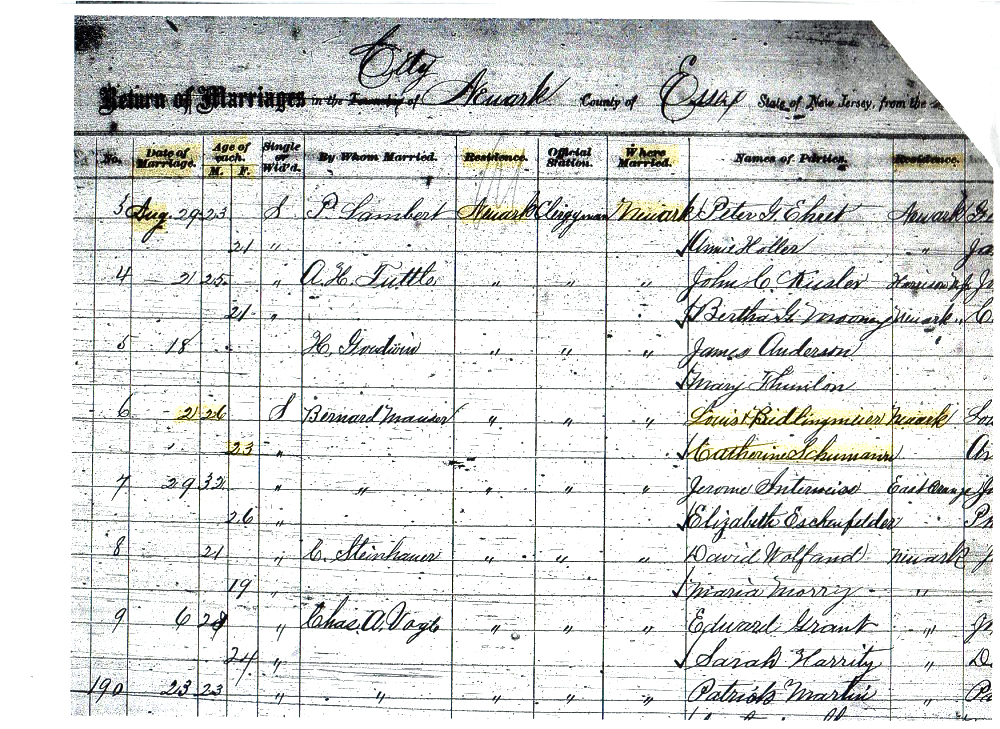 City
Return of Marriages in the Township of Newark County of Essex State of New Jersey, from the
No. Date of Marriage. Age of each. M. F. Single or Wid'd. By Whom Married. Residence. Official Station. Where Married. Names of Parties. Residence.
3 Aug. 29 23 S P. Lambert Newark Clergyman Newark Peter G. Ehret Newark
21 " Annie Holler "
4 21 25 " A. H. Tuttle " " " John C. Harrison
21 " Bertha G. Mooney Newark
5 18 H. Goodwin " " " James Anderson
Mary
6 21 26 S Bernard Mauser " " " Louis Bidlingmeier Newark
23 " Catherine Schumann
7 29 32 " " " " " Jerome Interweiss East Orange
26 " Elizabeth Eschenfelder
8 21 " C. Steinhauer " " " David Wolfand Newark
19 " Maria Morry "
9 6 28 " Chas. A. Vogt " " " Edward Grant "
24 " Sarah Harrity "
190 23 23 " " " " " Patrick Martin "